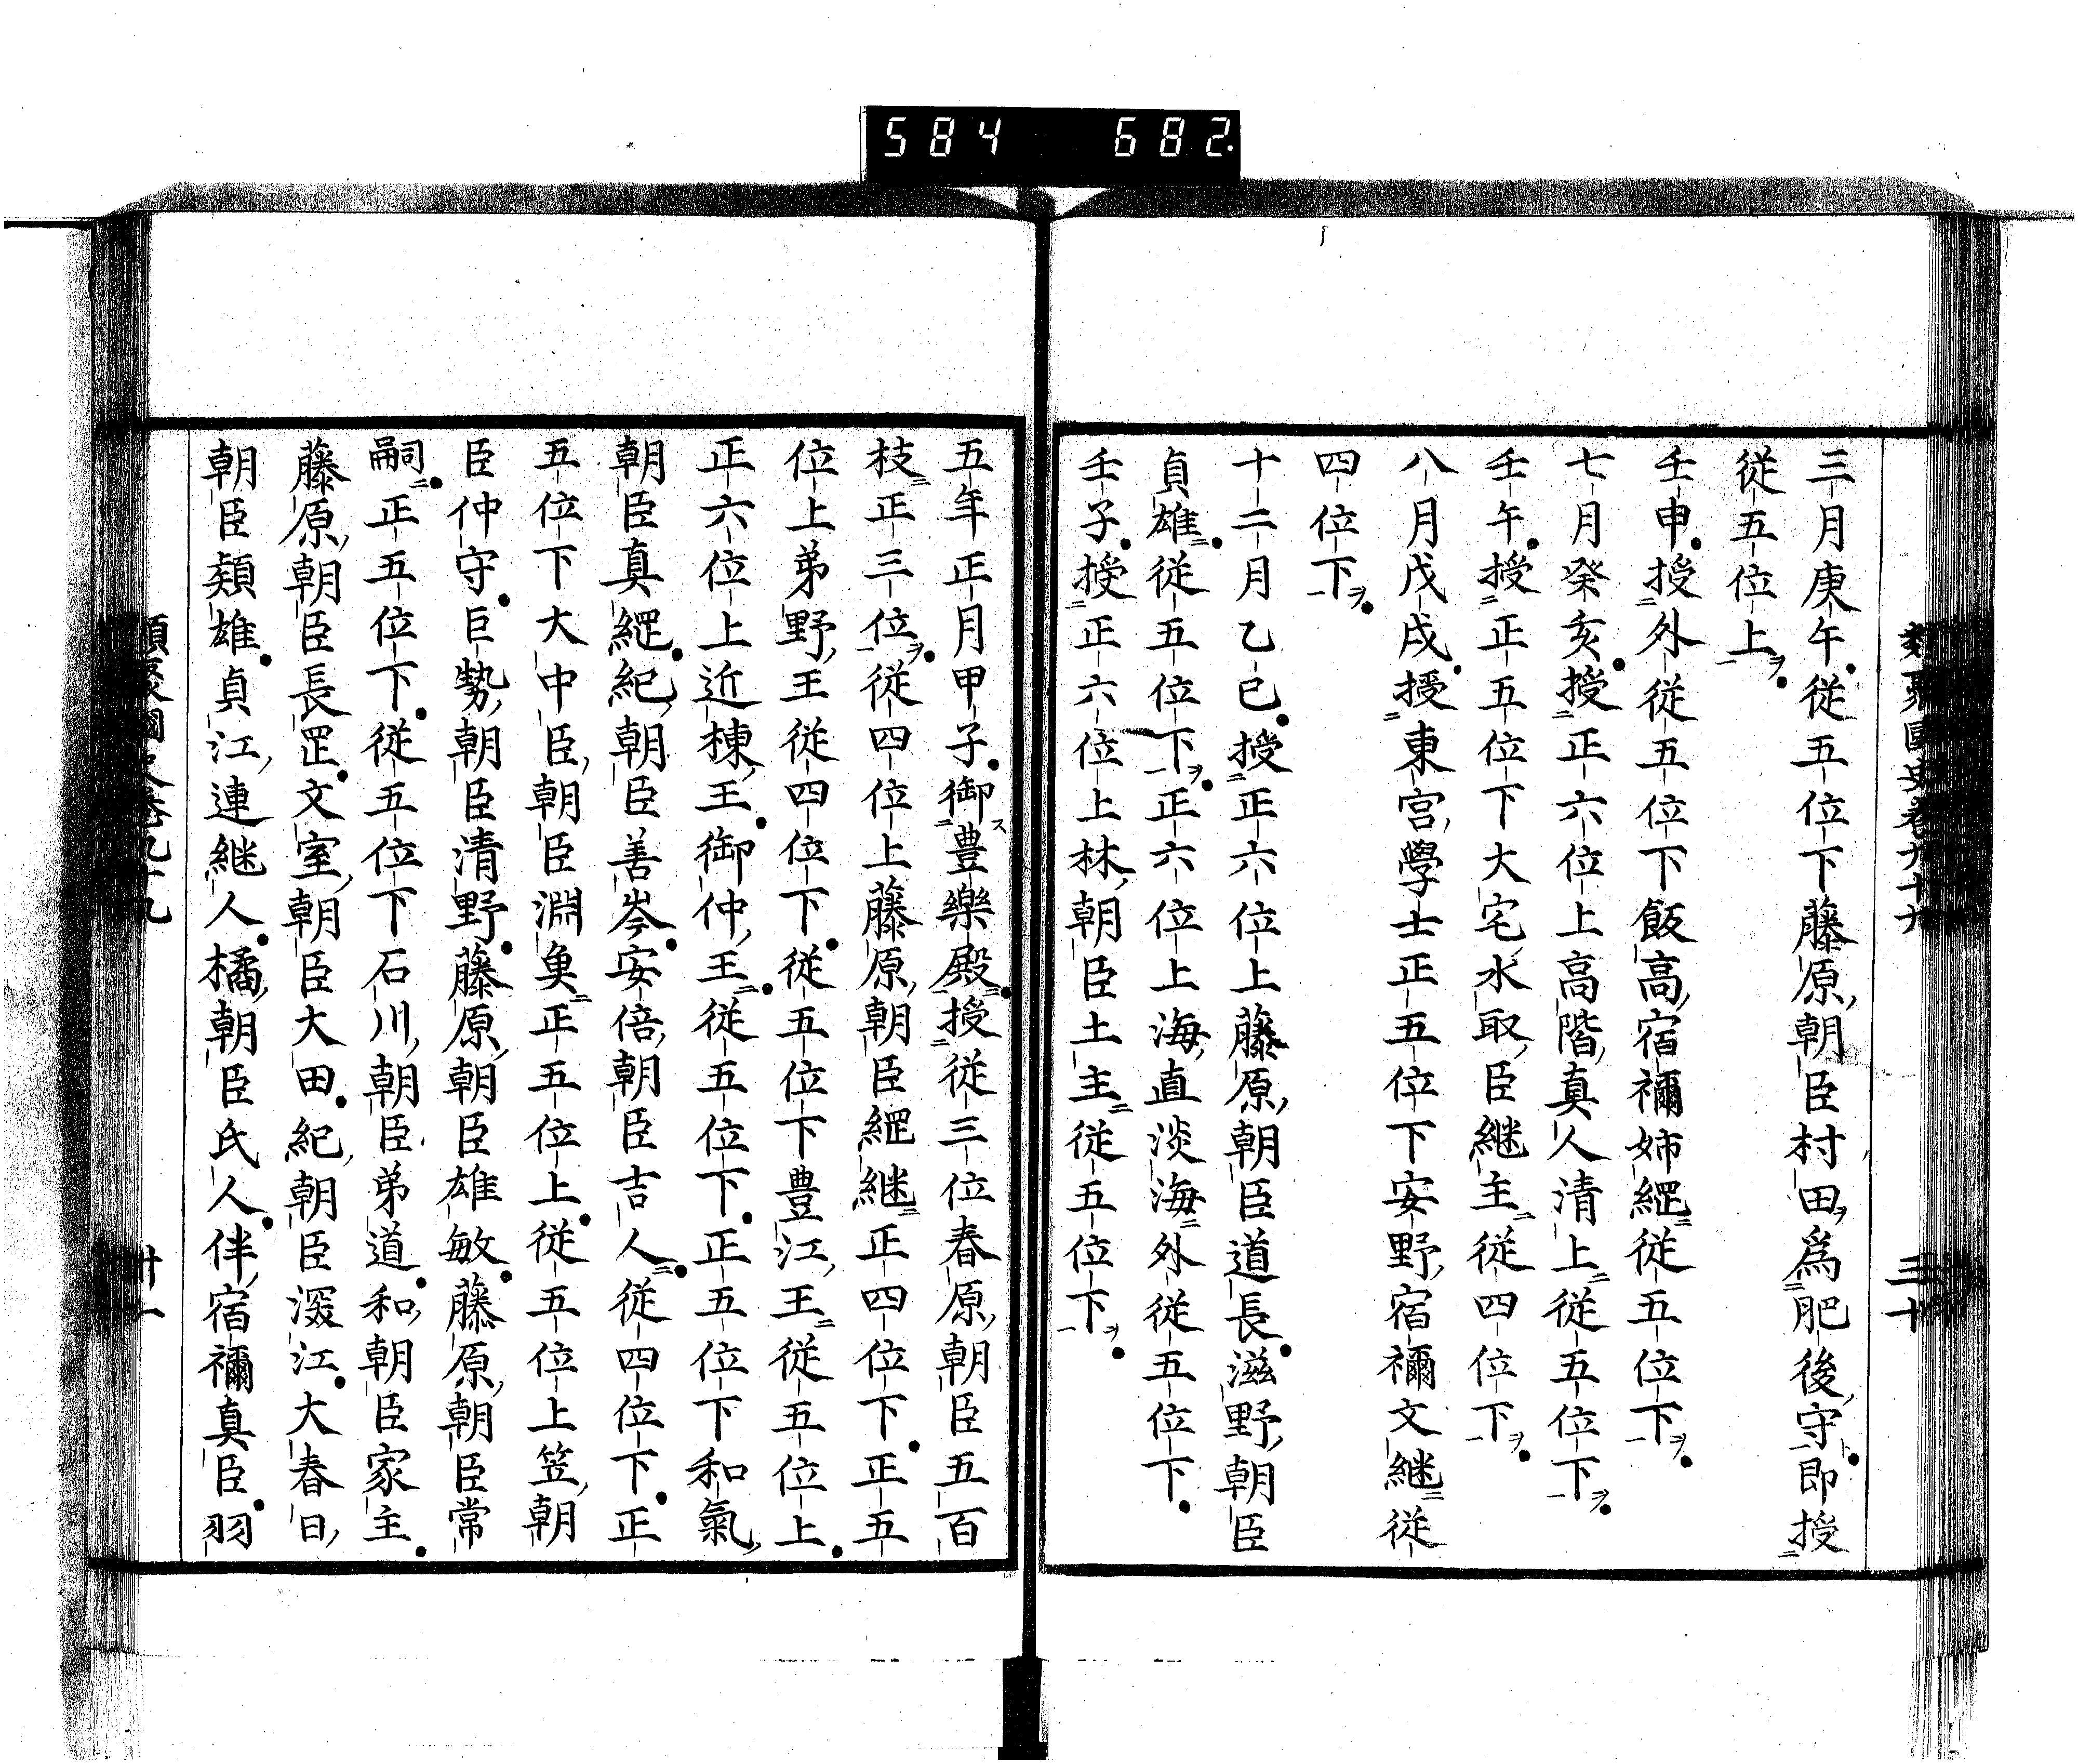 584 682
類聚國史卷九十九 三十
三月庚午從五位下藤原朝臣村田爲肥後守即授
從五位上
壬申授外從五位下飯高宿禰姉綱從五位下
七月癸亥授正六位上高階真人清上從五位下
壬午授正五位下大宅水取臣継主從四位下
八月戊戌授東宮學士正五位下安野宿禰文継從
四位下
十二月乙巳授正六位上藤原朝臣道長滋野朝臣
貞雄從五位下正六位上海直淡海外從五位下
壬子授正六位上林朝臣土主從五位下
五年正月甲子御豊樂殿授從三位春原朝臣五百
枝正三位從四位上藤原朝臣綱継正四位下正五
位上弟野王從四位下從五位下豊江王從五位上
正六位上近棟王御仲王從五位下正五位下和氣
朝臣真綱紀朝臣善岑安倍朝臣吉人從四位下正
五位下大中臣朝臣淵魚正五位上從五位上笠朝
臣仲守巨勢朝臣清野藤原朝臣雄敏藤原朝臣常
嗣正五位下從五位下石川朝臣弟道和朝臣家主
藤原朝臣長罡文室朝臣大田紀朝臣深江大春日
朝臣頴雄貞江連継人橘朝臣氏人伴宿禰真臣羽
類聚國史卷九十九 卅一